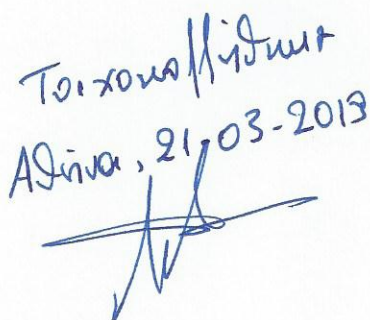 Τοιχοκολλήθηκε
Αθήνα, 21-03-2013